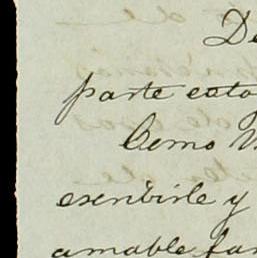 De
parte esto
Como V
escribirle y
amable fam